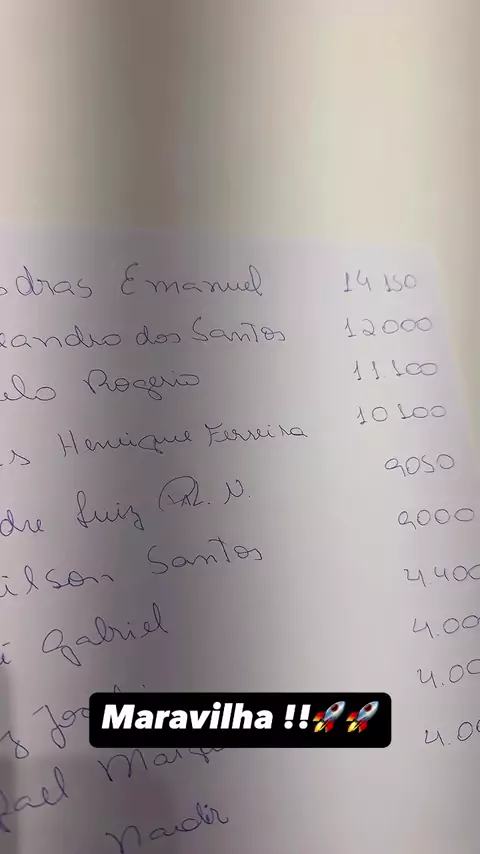 odras Emanuel 14 150
eandro dos Santos 12000
elo Rogerio 11.100
s Henrique Ferreira 10100
dre Luiz N. 9050
ilson Santos 9000
Gabriel 4.400
4.00
ael 4.00
Nardir 4.00
Maravilha !!🚀🚀